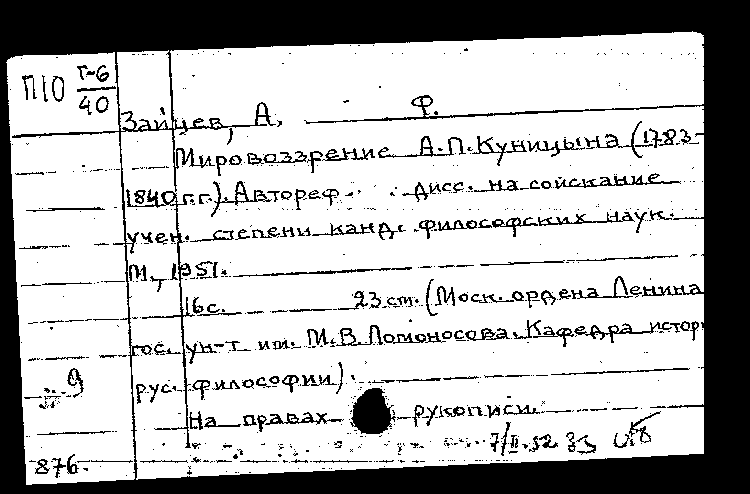 П10 Г-6
40
Зайцев, А. Ф.
Мировоззрение А.П.Куницына (1783-
1840 г.г.). Автореф. дисс. на соискание
учен. степени канд. философских наук.
М., 1951.
16с. 23 ст. (Моск. ордена Ленина
гос. ун-т им. М.В.Ломоносова. Кафедра истор
рус. философии).
9
На правах рукописи.
7/II.52.
876.